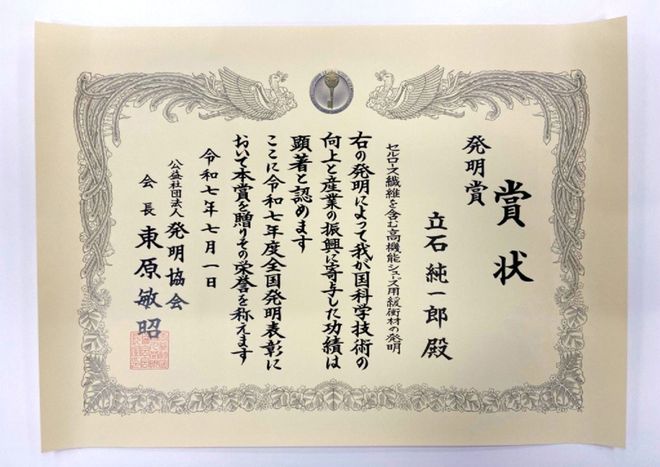 賞状
発明賞
立石 純一郎 殿
セルロース繊維を含む高機能シューズ用緩衝材の発明
右の発明によって我が国科学技術の
向上と産業の振興に寄与した功績は
顕著と認めます
ここに令和七年度全国発明表彰に
おいて本賞を贈りその栄誉を称えます
令和七年七月一日
公益社団法人 発明協会
会長 東原敏昭